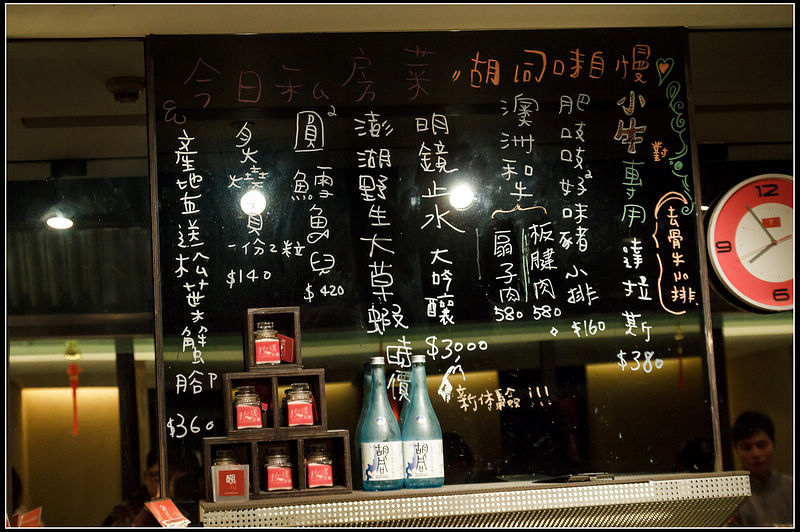 今日私房菜
胡同味自慢
小牛對
專用 達拉斯
$380
去骨牛小排
肥吱吱好味豬小排
$160
澳洲和牛
板腱肉
580
扇子肉
580
明鏡止水 大吟釀
$3000
新体驗!!!
澎湖野生大草蝦 時價
圓鱈魚兒
$420
一份2粒
$140
產地直送松葉蟹
$360
12
3
6
9
胡同